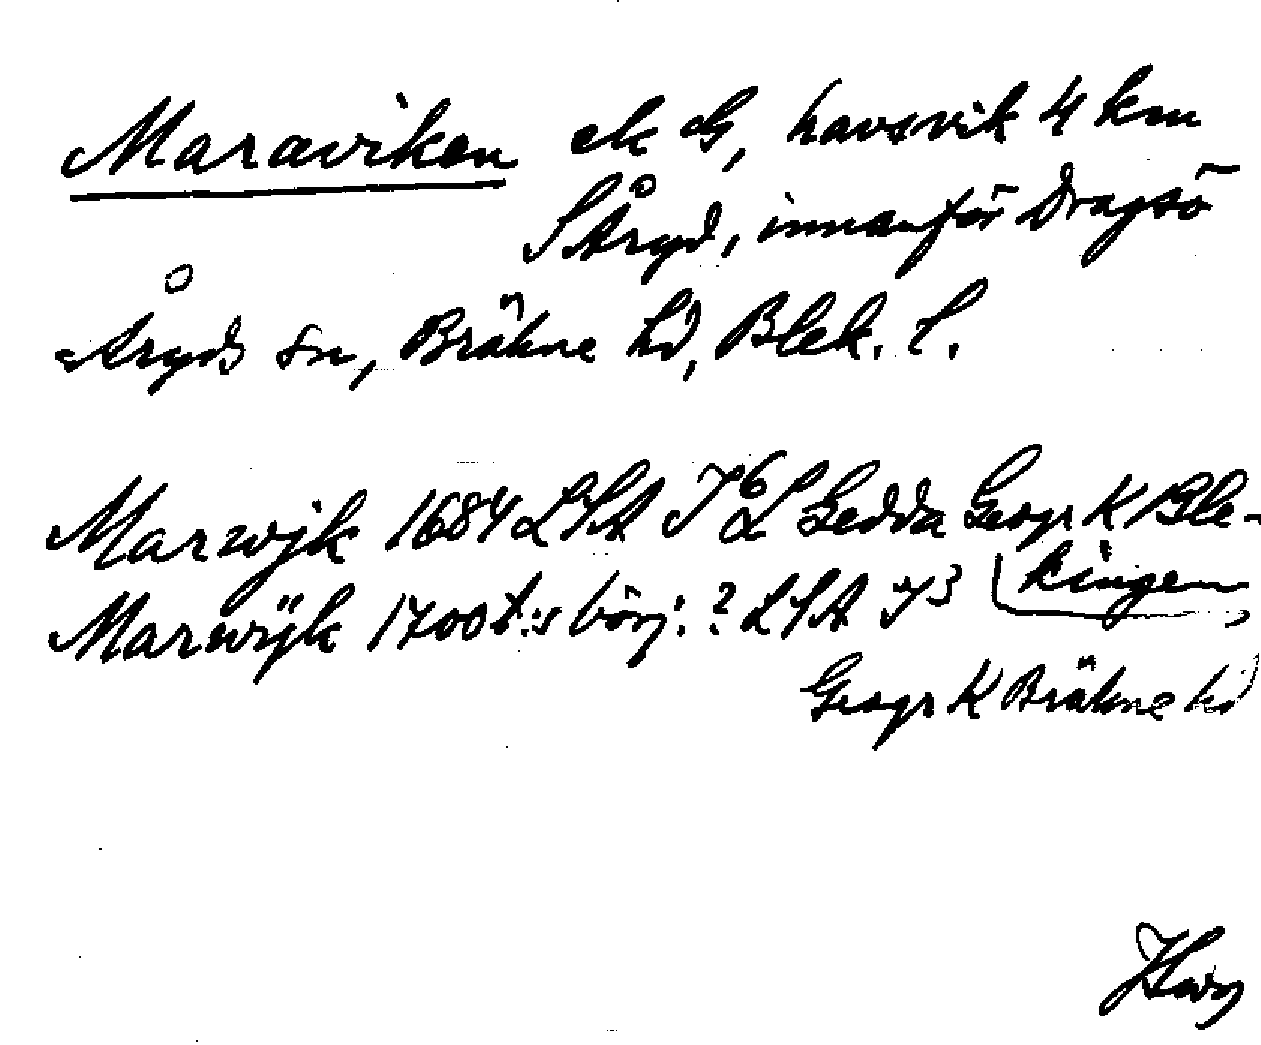 Maraviken ek G, havsvik 4 km
S Åryd, innanför Dragsö
Åryds sn, Bräkne hd, Blek. l.
Marwijk 1684 LSA I 6 L Gedda Geogr K Ble-
kingen
Marwÿk 1700 t:s börj: ? LSA I 3
Geogr K Bräkne hd